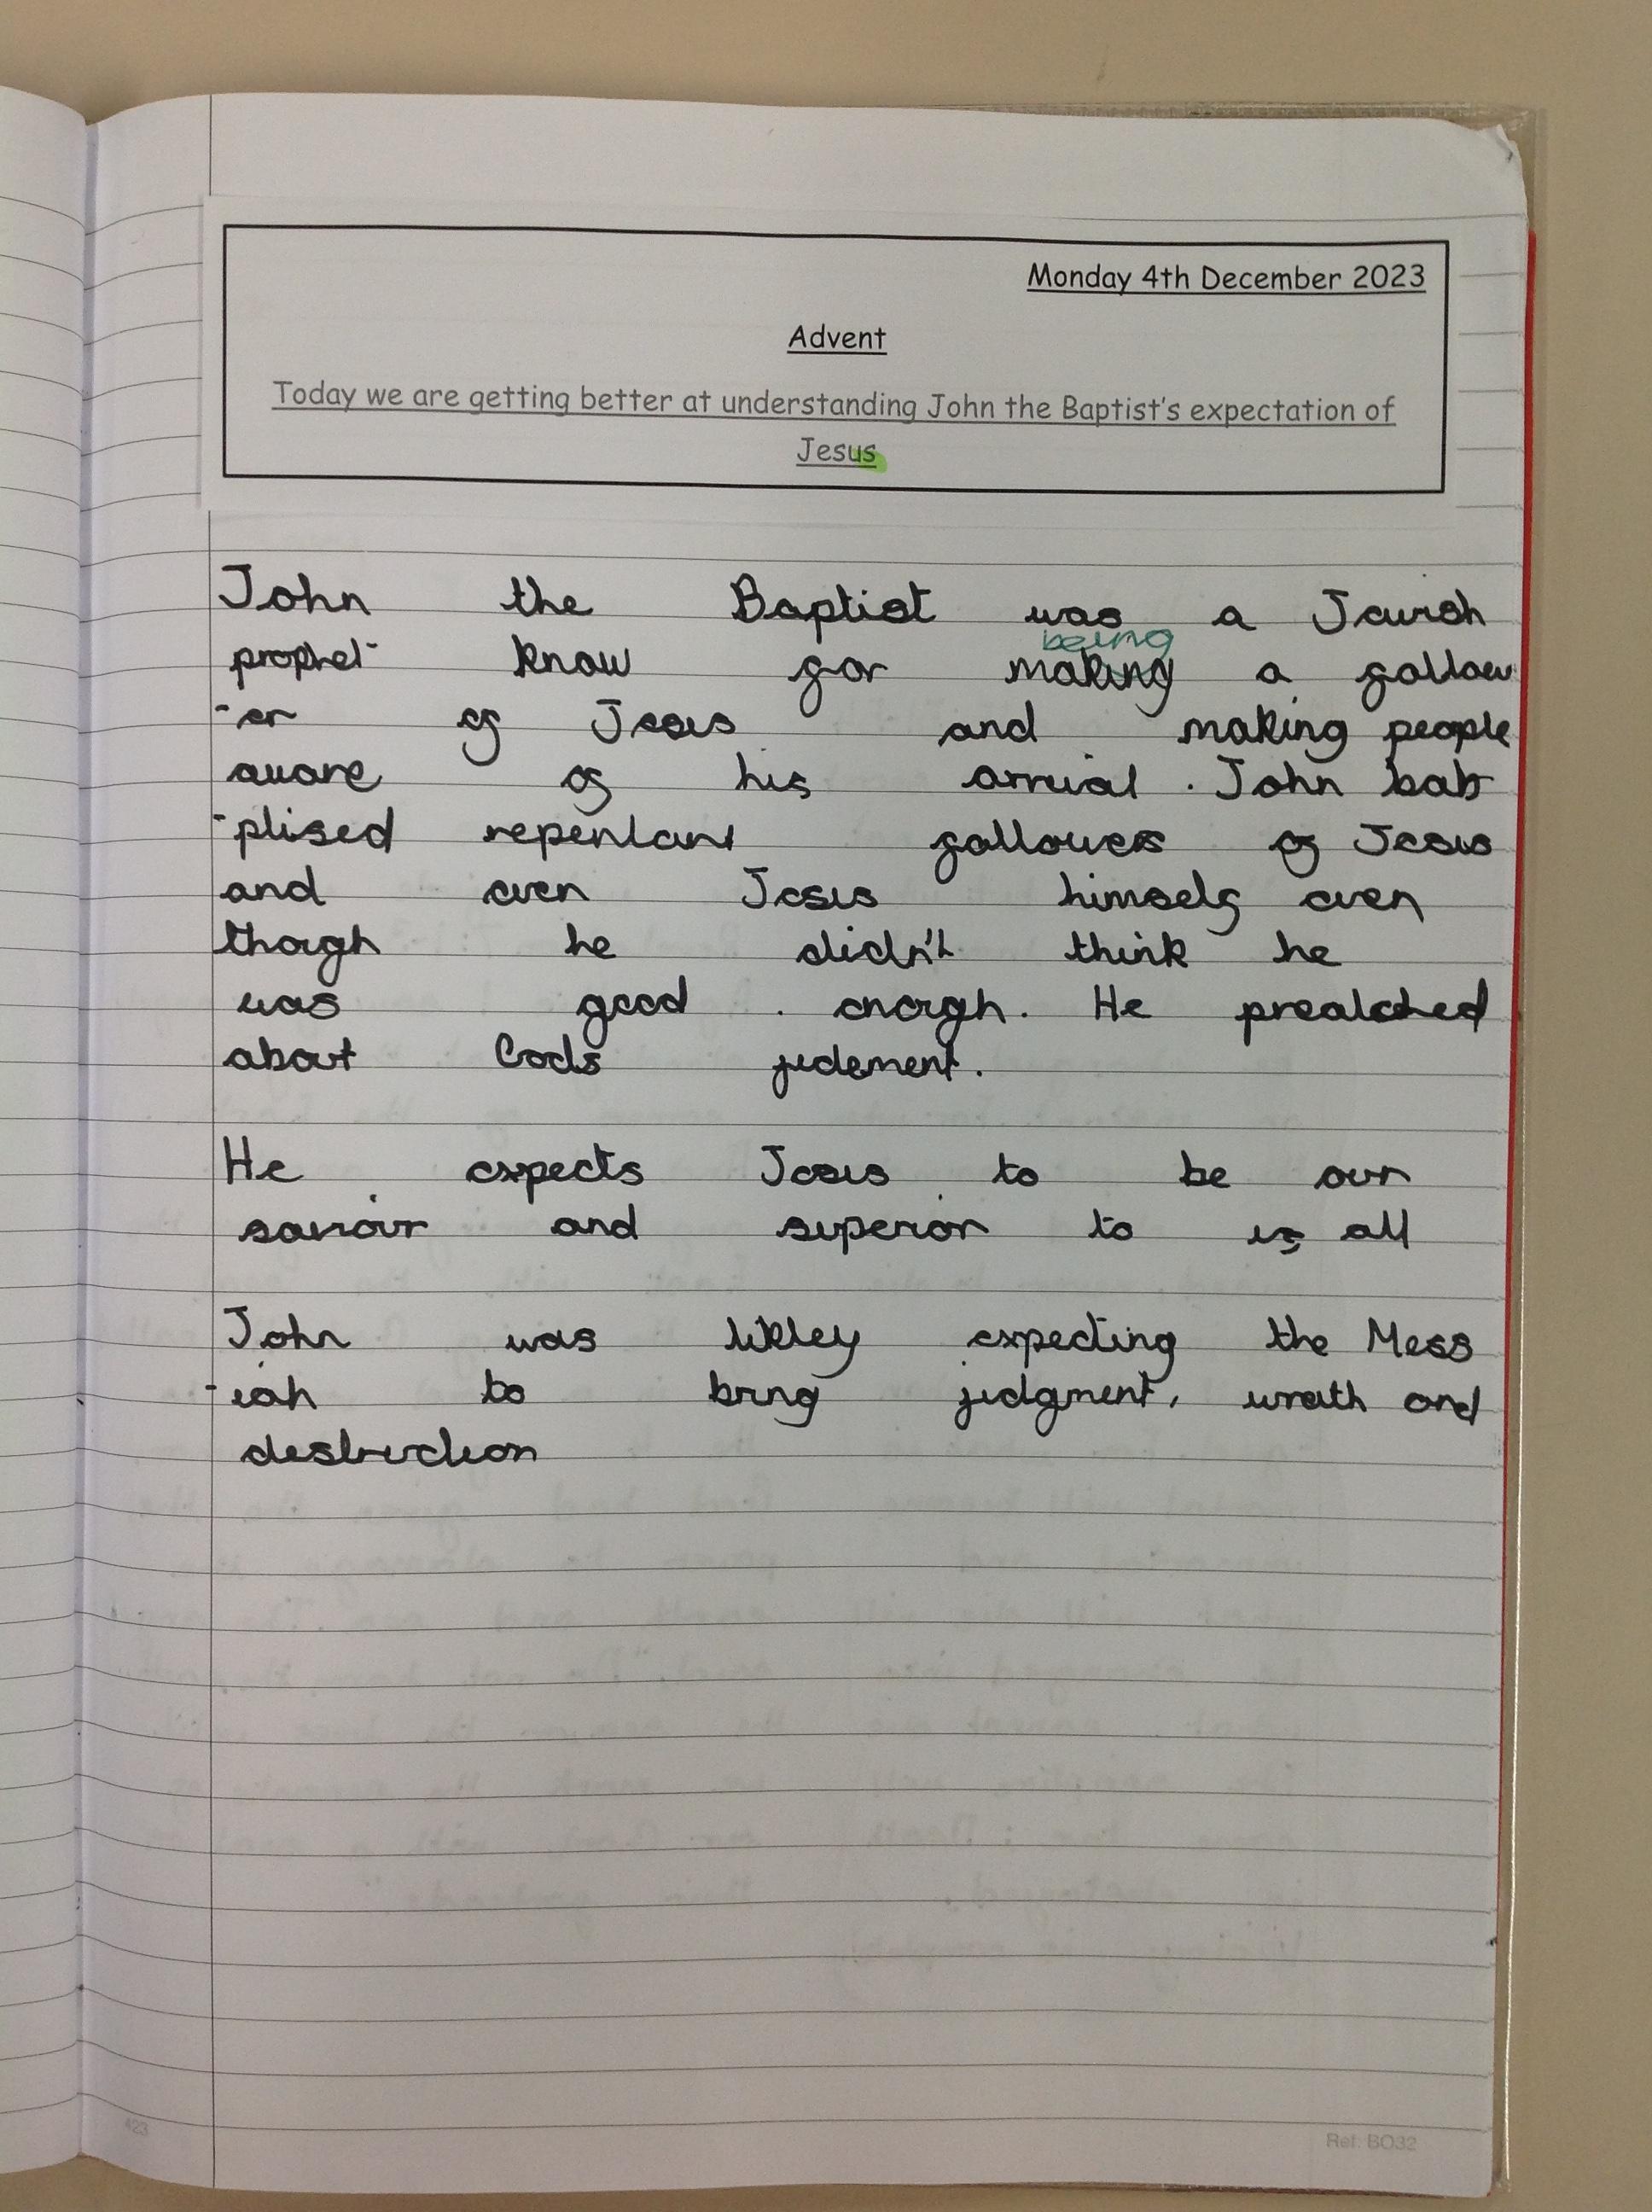 Monday 4th December 2023
Advent
Today we are getting better at understanding John the Baptist's expectation of
Jesus
John the Baptist was a Jewish
being
prophet know for making a follow
-er of Jesus and making people
aware of his arrival. John bab
-ptised repentant followers of Jesus
and even Jesus himself even
though he didn't think he
was good enough. He preatched
about Gods judement.
He expects Jesus to be our
saviour and superior to us all
John was likley expecting the Mess
-iah to bring judgment, wrath and
destruction
423
Ref: BO32